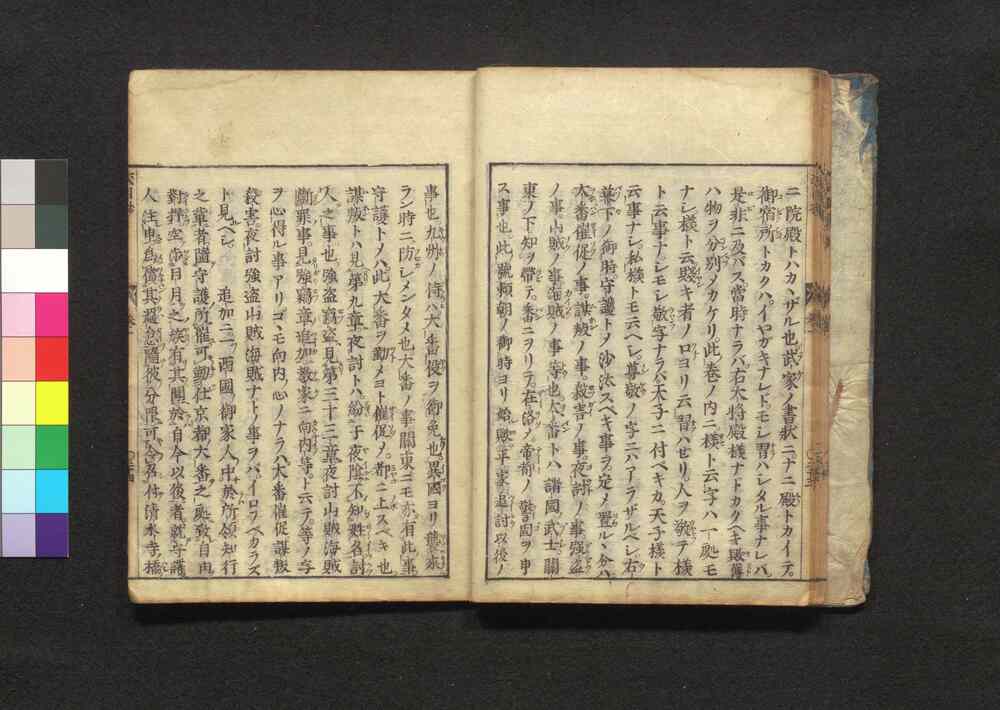 ニ院殿トハカハザル也武家ノ書状ニナニ殿トカイテ
御宿所トカクハイヤガキナレドモレ習ハレタル事ナレバ
是非ニ及バス當時ナラバ右大将殿様ナトカクヘキ
ハ物ヲ分別ノカケリ此巻ノ内ニ様ト云字ハ一處モ
ナレ様ト云賤キ者ノ口ヨリ云習ハせリ人ヲ敬テ様
ト云事ナレモレ敬字ナラハ天子ニ付ベキカ天子様ト
云事ナレ私様トモ云ヘレ尊敬ノ字ニハアラザルベレ右
兼下ノ御時守護トノ沙汰スベキ事ヲ定メ置ルヽ分ハ
大番催促ノ事謀叛ノ事殺害ノ事夜討ノ事強盗
ノ事山賊ノ事海賊ノ事等也大番トハ諸國武士關
東ノ下知ヲ帶テ番ニヲリテ在洛メ帝都ノ警固ヲ申
ス事也此號頼朝ノ御時ヨリ始歟平家追討以後ノ
事也九州ノ侍ハ大番役ヲ御免也異國ヨリ襲來
ラン時ニ防レメンタメ也大番ノ事關東ニモ亦有此事
守護トメハ此大番ヲ勤メヨト催促ノ都ニ上スベキ也
謀叛トハ見第九章夜討トハ紛于夜陰不知姓名討
人之事也強盗竊盗見第三十三章夜討山賊海賊
斷罪事見強竊章追加数家ニ向内等ト云テ等ノ字
ヲ心得ル事アリゴヽモ向内ノ心ノナラハ大番催促謀叛
殺害夜討強盗山賊海賊ナトノ事ヲバイロフベカラズ
ト見ヘレ 追加ニ云西國御家人中於所領知行
之輩者隨守護所催可勤仕京都大番之處致自由
對捍空 日月之族有其聞於自今以後者就守護
人注申爲 其過怠隨彼分限可令付清水寺橋